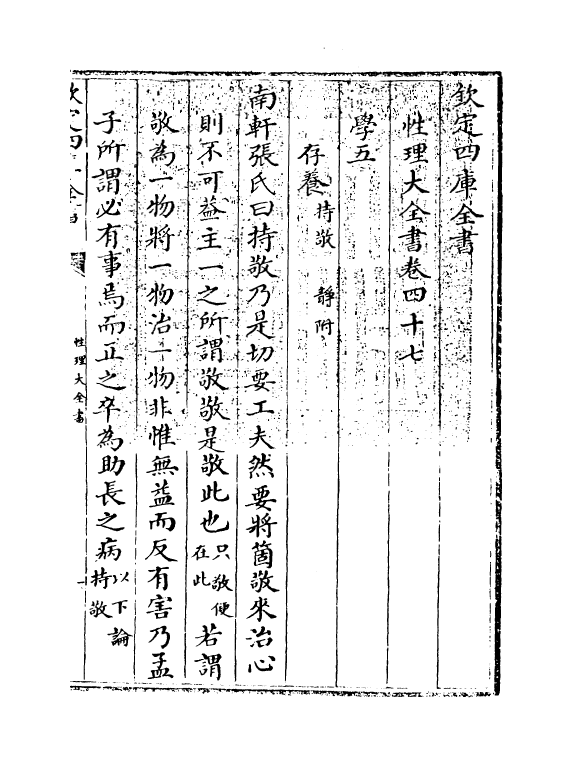 欽定四庫全書
性理大全書卷四十七
學五
存養 持敬 靜附
南軒張氏曰持敬乃是切要工夫然要將箇敬來治心
則不可蓋主一之所謂敬敬是敬此也只敬便在此若謂
敬為一物將一物治一物非惟無益而反有害乃孟
子所謂必有事焉而正之卒為助長之病以下論持敬
性理大全書
一